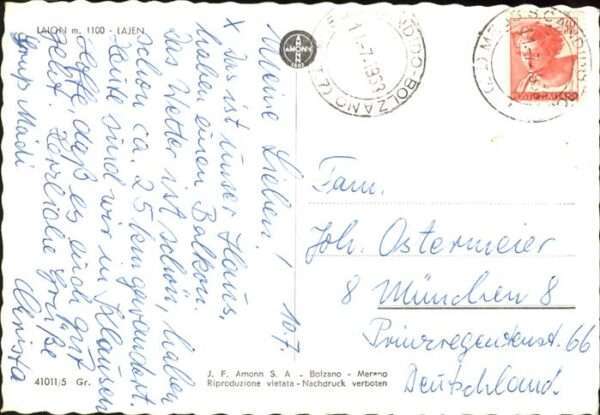 LAION m. 1100 - LAJEN
AMONN
Meine Lieben! 10.7
X Das ist unser Haus,
haben einen Balkon.
Das Wetter ist schön, haben
schon ca. 25 km gewandert.
Heute sind wir in Klausen
Hoffe daß es euch gut
geht. Herzliche Grüße
Christa
41011/5 Gr.
J. F. Amonn S. A. - Bolzano - Merano
Riproduzione vietata - Nachdruck verboten
BOLZANO
Fam.
Joh. Ostermeier
8 München 8
Prinzregentenst. 66
Deutschland.